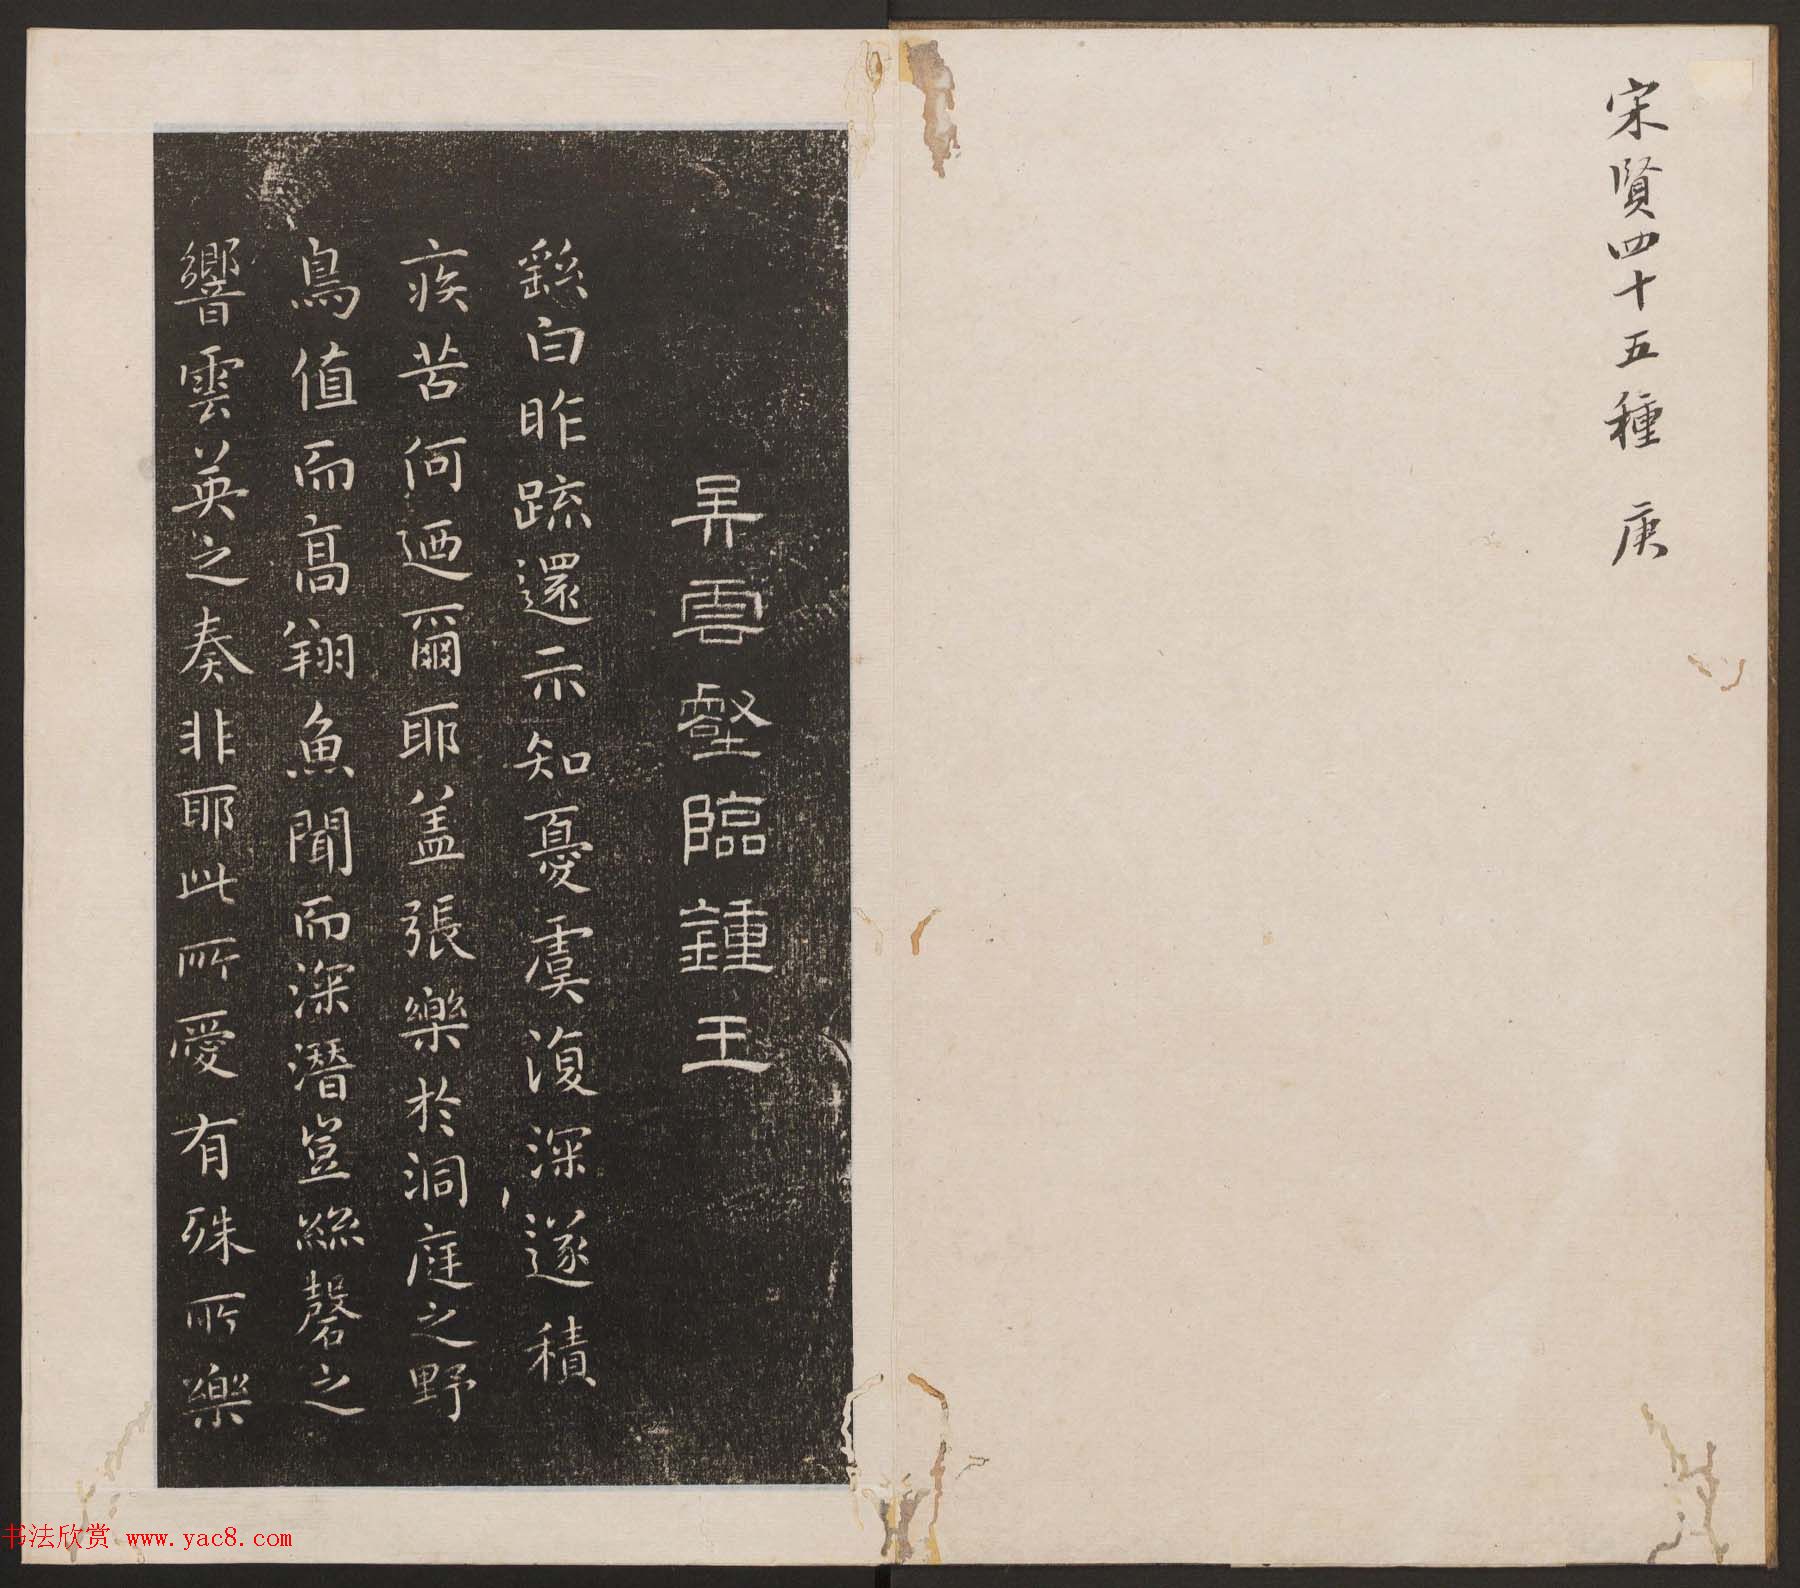 宋賢四十五種 庚
吴雲壑臨鍾王
繇白昨疏還示知憂虞復深遂積
疾苦何迺爾耶蓋張樂於洞庭之野
鳥值而高翔魚聞而深潛豈絲磬之
響雲英之奏非耶此所愛有殊所樂
书法欣赏 www.yac8.com